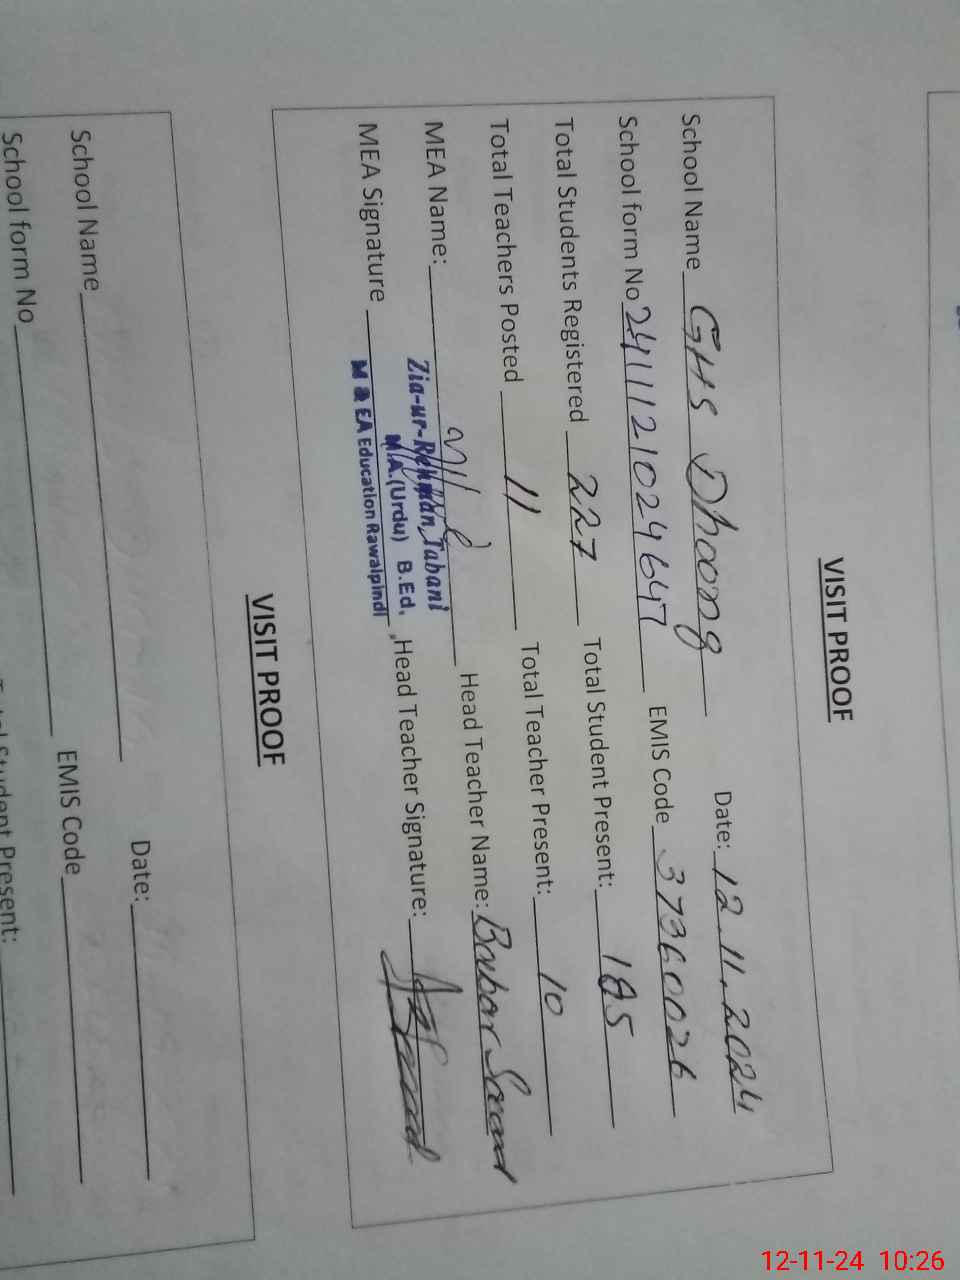 VISIT PROOF
School Name GHS Dhoong Date: 12.11.2024
School form No 2411121024647 EMIS Code 37360026
Total Students Registered 227 Total Student Present: 185
Total Teachers Posted 11 Total Teacher Present: 10
MEA Name: Head Teacher Name: Babar Saeed
Zia-ur-Rehman Tabani
M.A.(Urdu) B.Ed.
M & EA Education Rawalpindi
MEA Signature Head Teacher Signature:
VISIT PROOF
School Name Date:
School form No EMIS Code
Total Student Present:
12-11-24 10:26